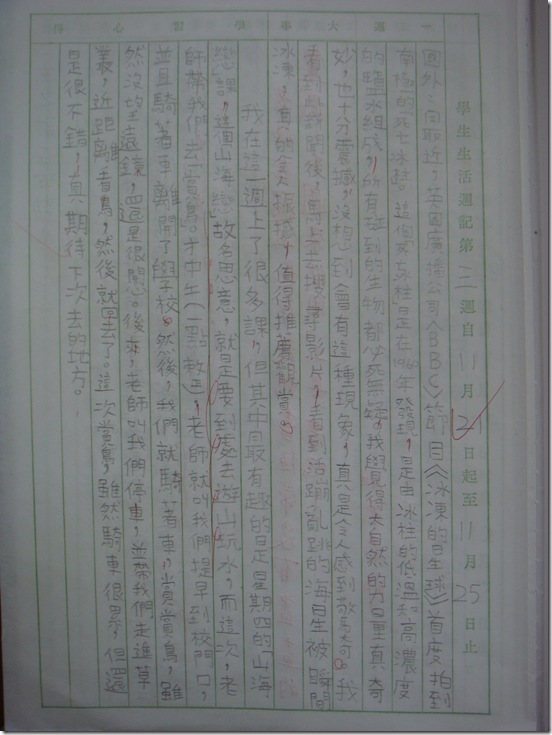 一週大事學習心得
學生生活週記第三週自11月21日起至11月25日止
國外:最近,英國廣播公司(BBC)節目《冰凍的星球》首度拍到
南極的「死亡冰柱」。這個「死亡冰柱」是在1960年發現,是由冰柱的低溫和高濃度
的鹽水組成,所有碰到的生物都必死無疑。我覺得大自然的力量真奇
妙,也十分震撼,沒想到會有這種現象,真是令人感到驚奇。我
看到此新聞後,馬上去搜尋影片,看到活蹦亂跳的海星被瞬間
冰凍,真的令人振撼,值得推薦觀賞。
我在這一週上了很多課,但其中最有趣的是星期四的「山海
戀」課,這個「山海戀」故名思意,就是要到處去遊山玩水,而這次,老
師帶我們去「賞鳥」。才中午(一點整),老師就叫我們提早到校門口,
並且騎著車離開了學校。然後,我們就騎著車,賞賞鳥,雖
然沒望遠鏡,還是很開心。後來,老師叫我們停車,並帶我們走進草
叢,近距離看鳥,然後就回去了。這次賞鳥,雖然騎車很累,但還
是很不錯,真期待下次去的地方。